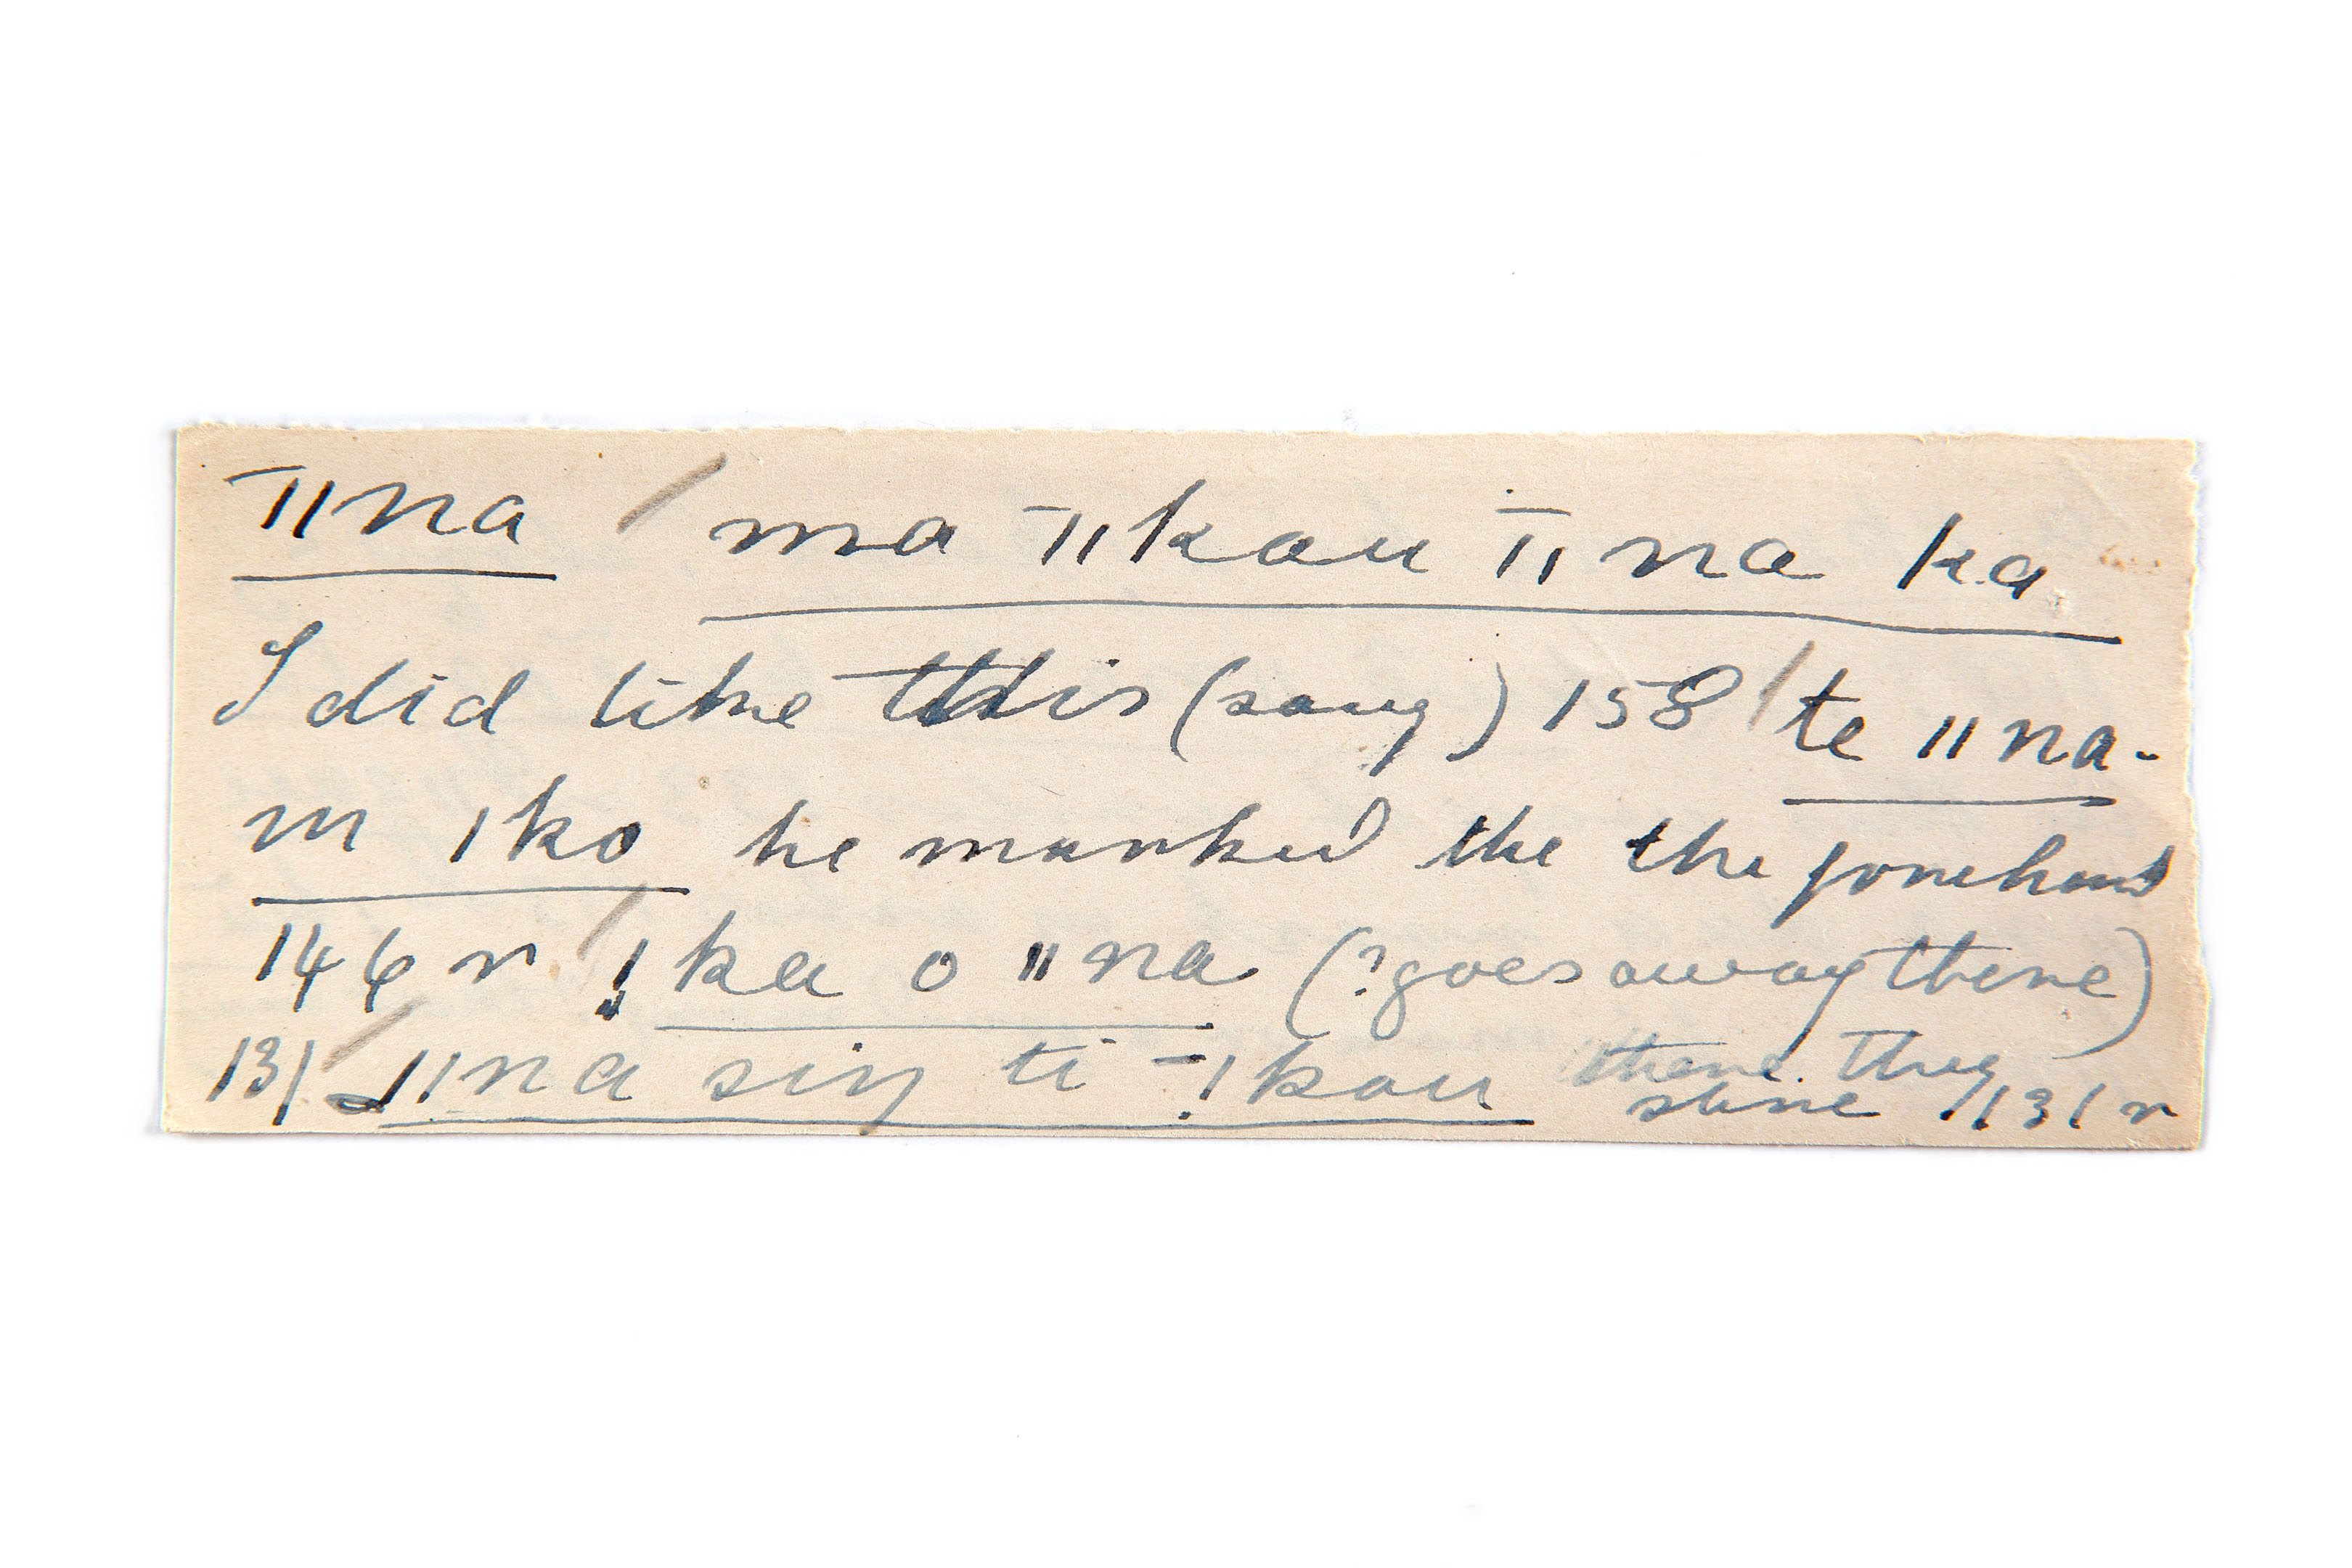 ‾ǁna / ma ‾ǁkau ‾ǁna ka
I did like this (sang) 158 / te ǁna-
m ǀko he marked the the forehead
146 r / !ka o ǁna (? goes away there)
131 / _ǁna siŋ ti ‾!kau there they
stine 1131 r